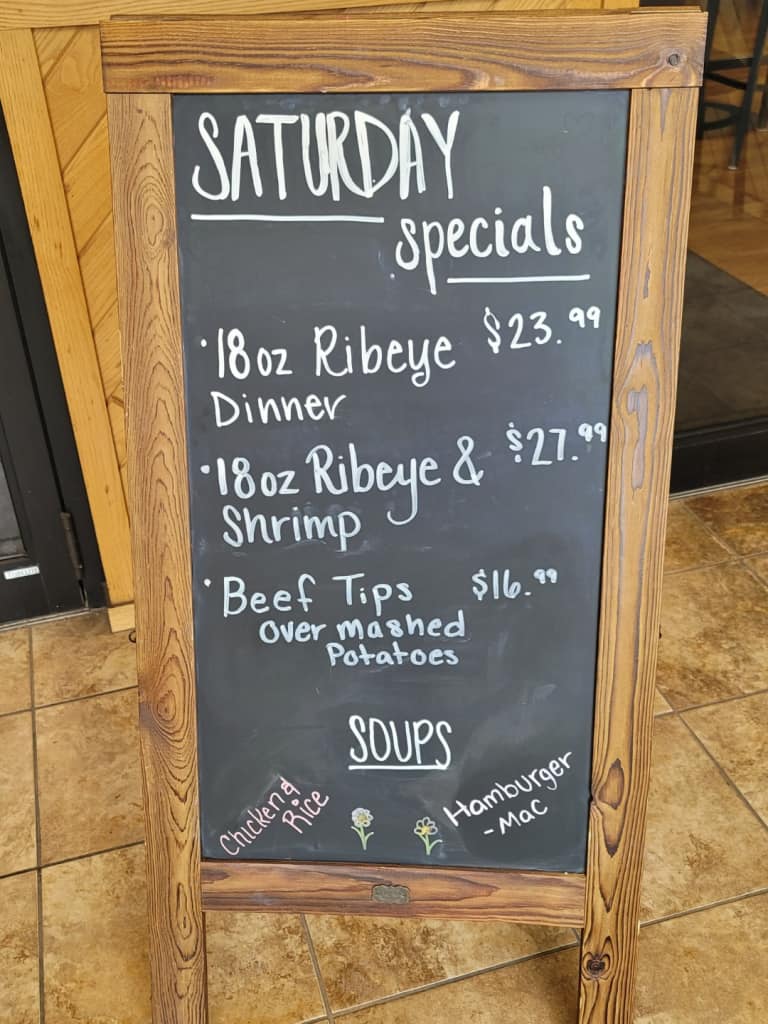 SATURDAY
specials
·18oz Ribeye $23.99
Dinner
·18oz Ribeye & $27.99
Shrimp
·Beef Tips $16.99
over mashed
Potatoes
SOUPS
Chicken &
Rice
Hamburger
-Mac